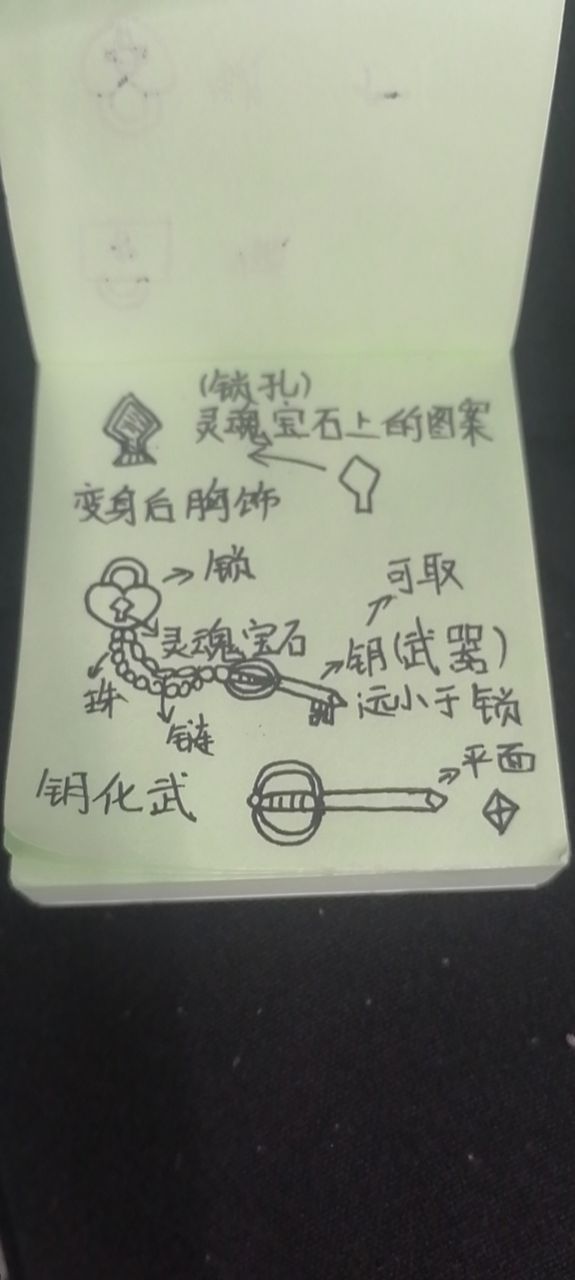 (锁孔)
灵魂宝石上的图案
变身后胸饰
锁
可取
灵魂宝石
钥(武器)
珠
远小于锁
链
平面
钥化武